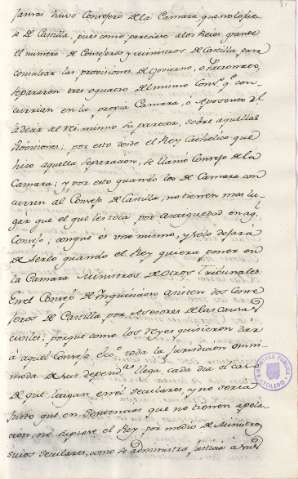 Jamas huvo Consejero de la Camara que no lo fuese
de Castilla, pues como pareciese a los Reies grande
el numero de Consejeros y ministros de Castilla para
consultar las provisiones de Govierno, o
separaron tres o quatro del mismo Consº qº con
currian en la propia Camara, o Aposento al
lado del Rei mismo su parecer, sobre aquellas
Provisiones; por esto todo el Rey Catholico que
hizo aquella separacion, se llamó Consejo de la
Camara; y por esto quando los de Camara con
curren al Consejo de Castilla, no tienen mas lu
gar que el que les toca por antiguedad en aql
Consejo, aunque es uno mismo, y solo dejara
de serlo quando el Rey quiera poner en
la Camara Ministros de otros Tribunales
En el Consejo de Inquisicion asisten dos Conse
jeros de Castilla por Asesores de las causas
porque como los Reyes quisieron dar
à aquel Consejo toda la Jurisdicion omni
moda de sus dependtes llega cada dia el caso
de que caigan en reos seculares, y no seria
Justo que en Personas que no tienen apela
cion, no tuviese el Rey por medio de Ministros
suios seculares, como se administra justicia a sus